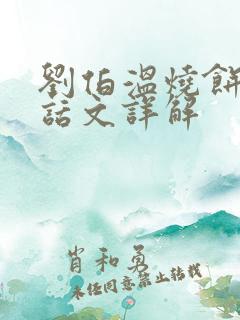 劉伯溫燒餅
話文詳解
肖和勇
未任同意禁止转载